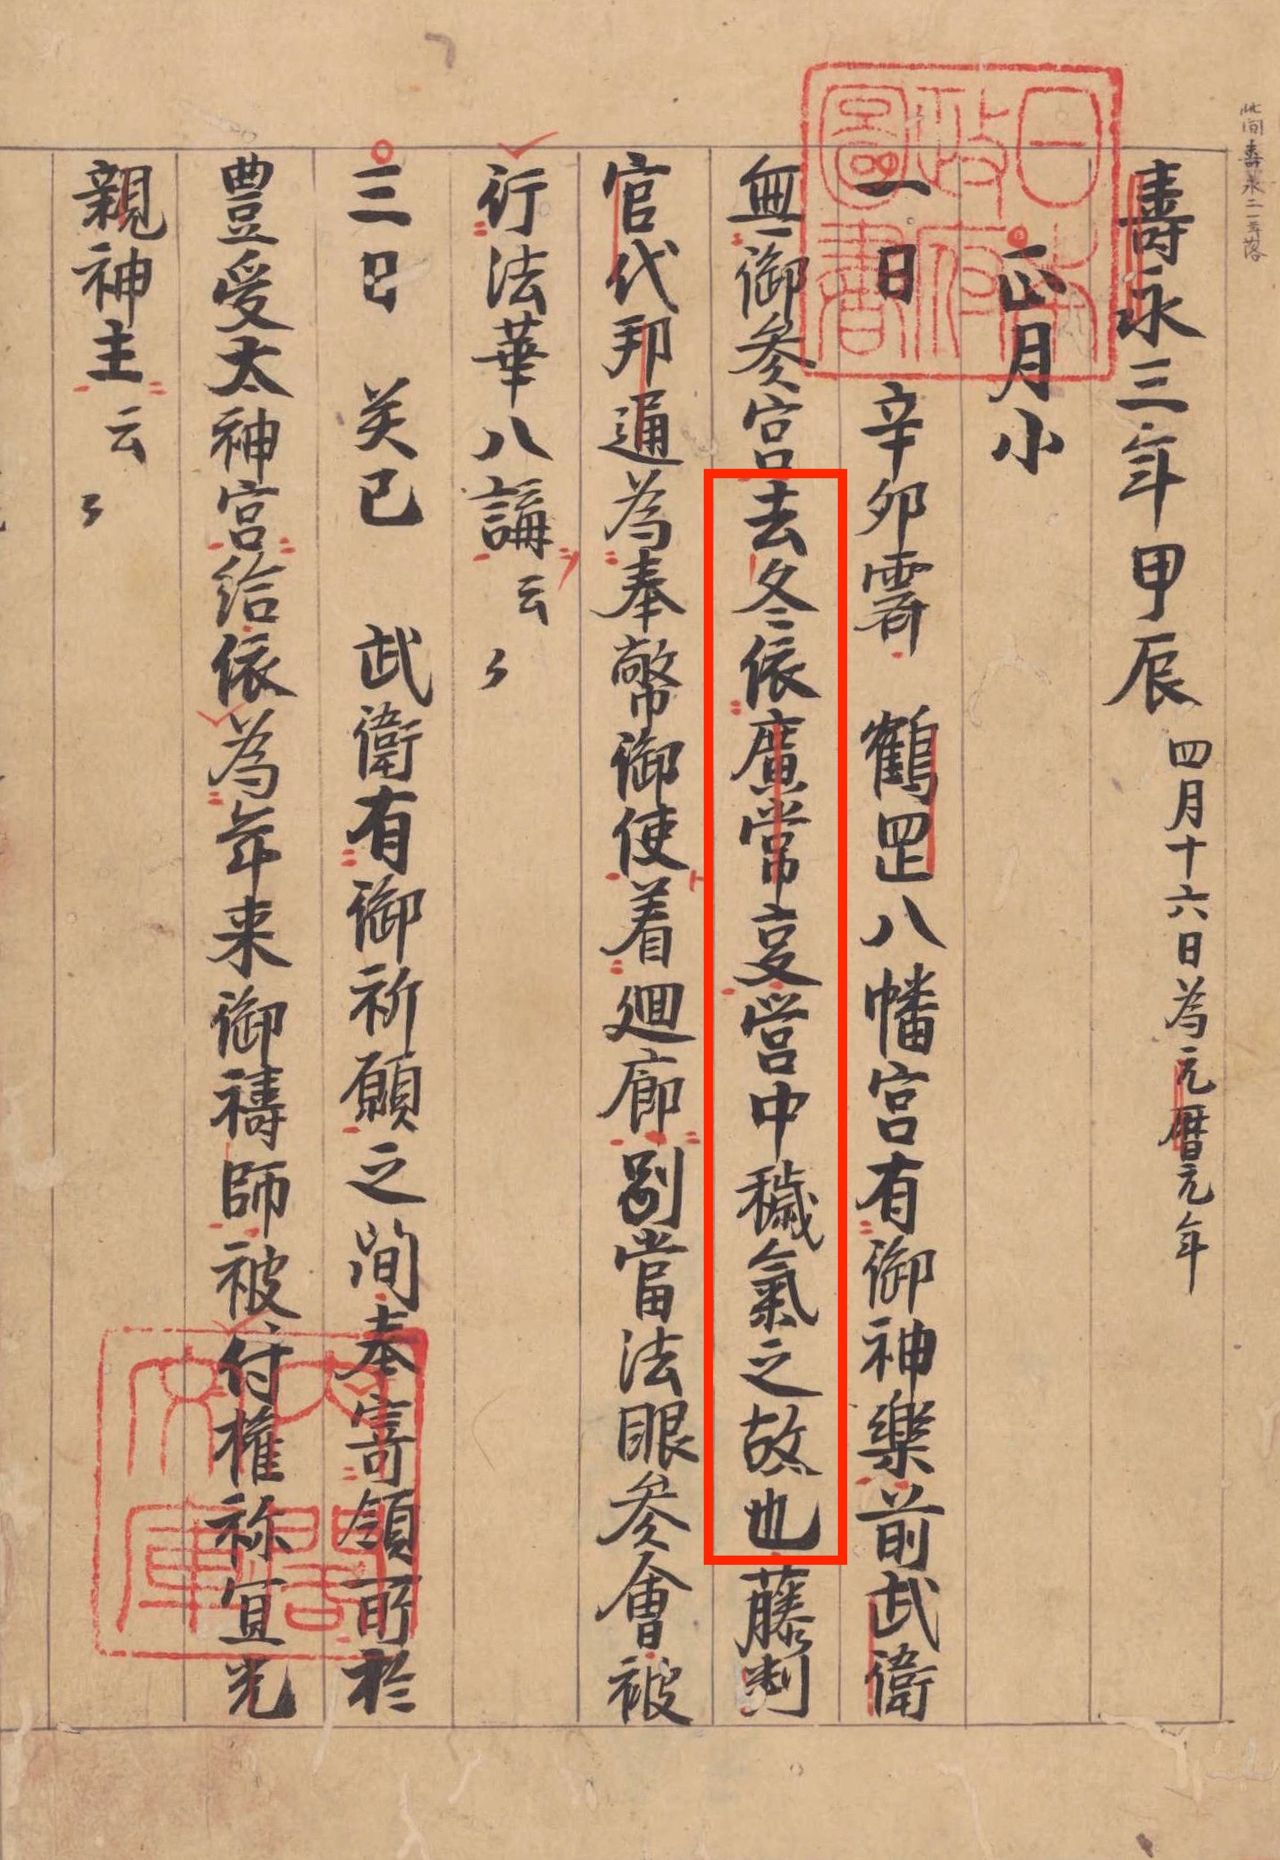 此間壽永二年落
壽永三年甲辰四月十六日為元暦元年
正月小
一日辛卯霽鶴罡八幡宮有御神樂前武衛
無御参宮去冬依廣常叓営中穢氣之故也藤判
官代邦通為奉幣御使着廻廊別當法眼参會被
行法華八講云々
三日癸巳武衛有御祈願之間奉寄領所於
豊受太神宮給依為年来御禱師被付權祢宜光
親神主云々
日本政府圖書
内閣文庫